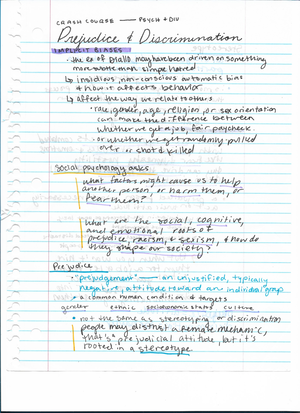 CRASH COURSE — PSYCH + DIV
Prejudice & Discrimination
IMPLICIT BIASES
• the ex of Diallo may have been driven on something
more automatic than simple hatred
↳ insidious, non-conscious automatic bias
& how it affects behavior
↳ affect the way we relate to others
• role, gender, age, religion, or sex orientation
can make the difference between
whether we get a job, fair paycheck
• or whether we get randomly pulled
over or shot & killed
Social psychology asks...
what factors might cause us to help
another person, or harm them, or
fear them?
what are the social, cognitive,
and emotional roots of
prejudice, racism, & sexism, & how do
they shape our society?
Prejudice
• "prejudgement" — an unjustified, typically
negative, attitude toward an individual/group
• a common human condition & targets
gender ethnic socioeconomic status culture
• not the same as stereotyping or discrimination
people may distrust a female mechanic,
that's a prejudicial attitude, but it's
rooted in a stereotype.